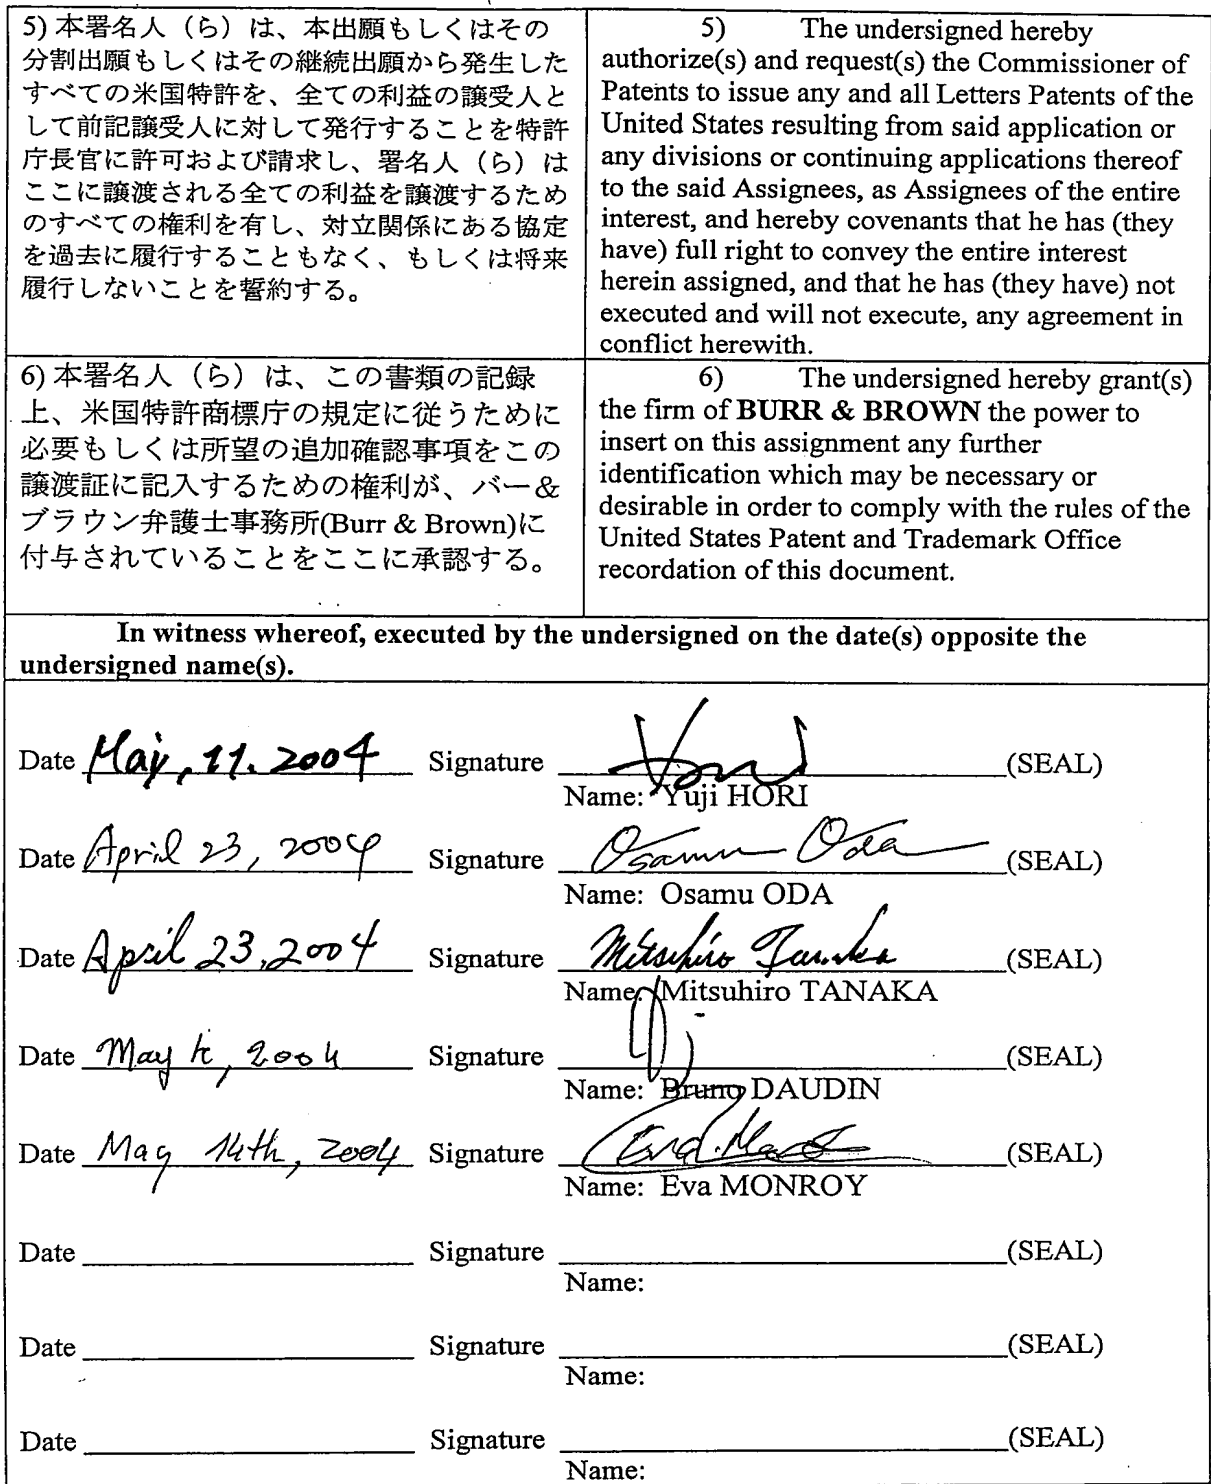 5) 本署名人（ら）は、本出願もしくはその
分割出願もしくはその継続出願から発生した
すべての米国特許を、全ての利益の譲受人と
して前記譲受人に対して発行することを特許
庁長官に許可および請求し、署名人（ら）は
ここに譲渡される全ての利益を譲渡するため
のすべての権利を有し、対立関係にある協定
を過去に履行することもなく、もしくは将来
履行しないことを誓約する。
5) The undersigned hereby
authorize(s) and request(s) the Commissioner of
Patents to issue any and all Letters Patents of the
United States resulting from said application or
any divisions or continuing applications thereof
to the said Assignees, as Assignees of the entire
interest, and hereby covenants that he has (they
have) full right to convey the entire interest
herein assigned, and that he has (they have) not
executed and will not execute, any agreement in
conflict herewith.
6) 本署名人（ら）は、この書類の記録
上、米国特許商標庁の規定に従うために
必要もしくは所望の追加確認事項をこの
譲渡証に記入するための権利が、バー＆
ブラウン弁護士事務所(Burr & Brown)に
付与されていることをここに承認する。
6) The undersigned hereby grant(s)
the firm of BURR & BROWN the power to
insert on this assignment any further
identification which may be necessary or
desirable in order to comply with the rules of the
United States Patent and Trademark Office
recordation of this document.
In witness whereof, executed by the undersigned on the date(s) opposite the
undersigned name(s).
Date May, 11. 2004 Signature (SEAL)
Name: Yuji HORI
Date April 23, 2004 Signature Osamu Oda (SEAL)
Name: Osamu ODA
Date April 23, 2004 Signature Mitsuhiro Tanaka (SEAL)
Name: Mitsuhiro TANAKA
Date May , 2004 Signature (SEAL)
Name: Bruno DAUDIN
Date May 14th, 2004 Signature (SEAL)
Name: Eva MONROY
Date Signature (SEAL)
Name:
Date Signature (SEAL)
Name:
Date Signature (SEAL)
Name: